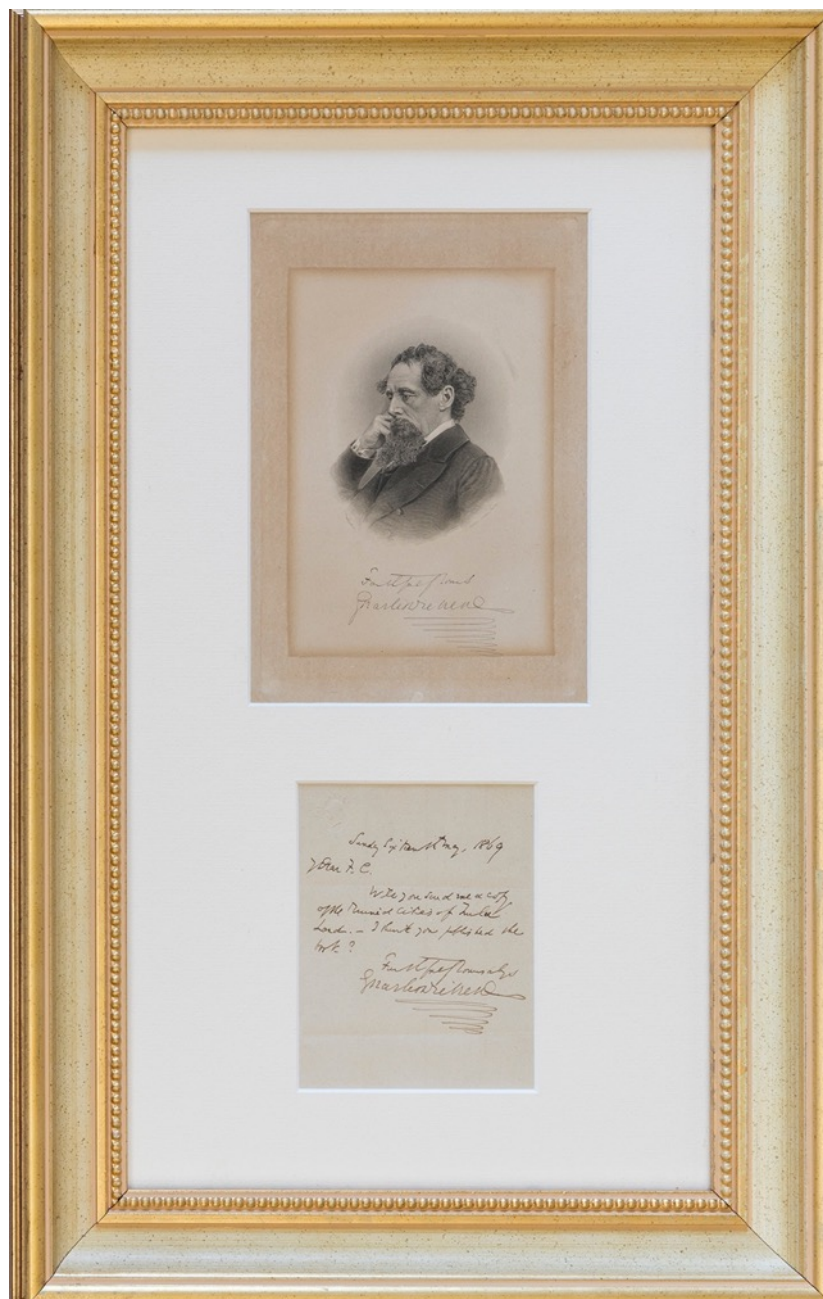 Faithfully Yours
Charles Dickens
Sunday Sixteenth May, 1869
My Dear F. C.
Will you send me a copy
of the Ruined Cities of
Land. – I think you published the
book?
Faithfully Yours always
Charles Dickens